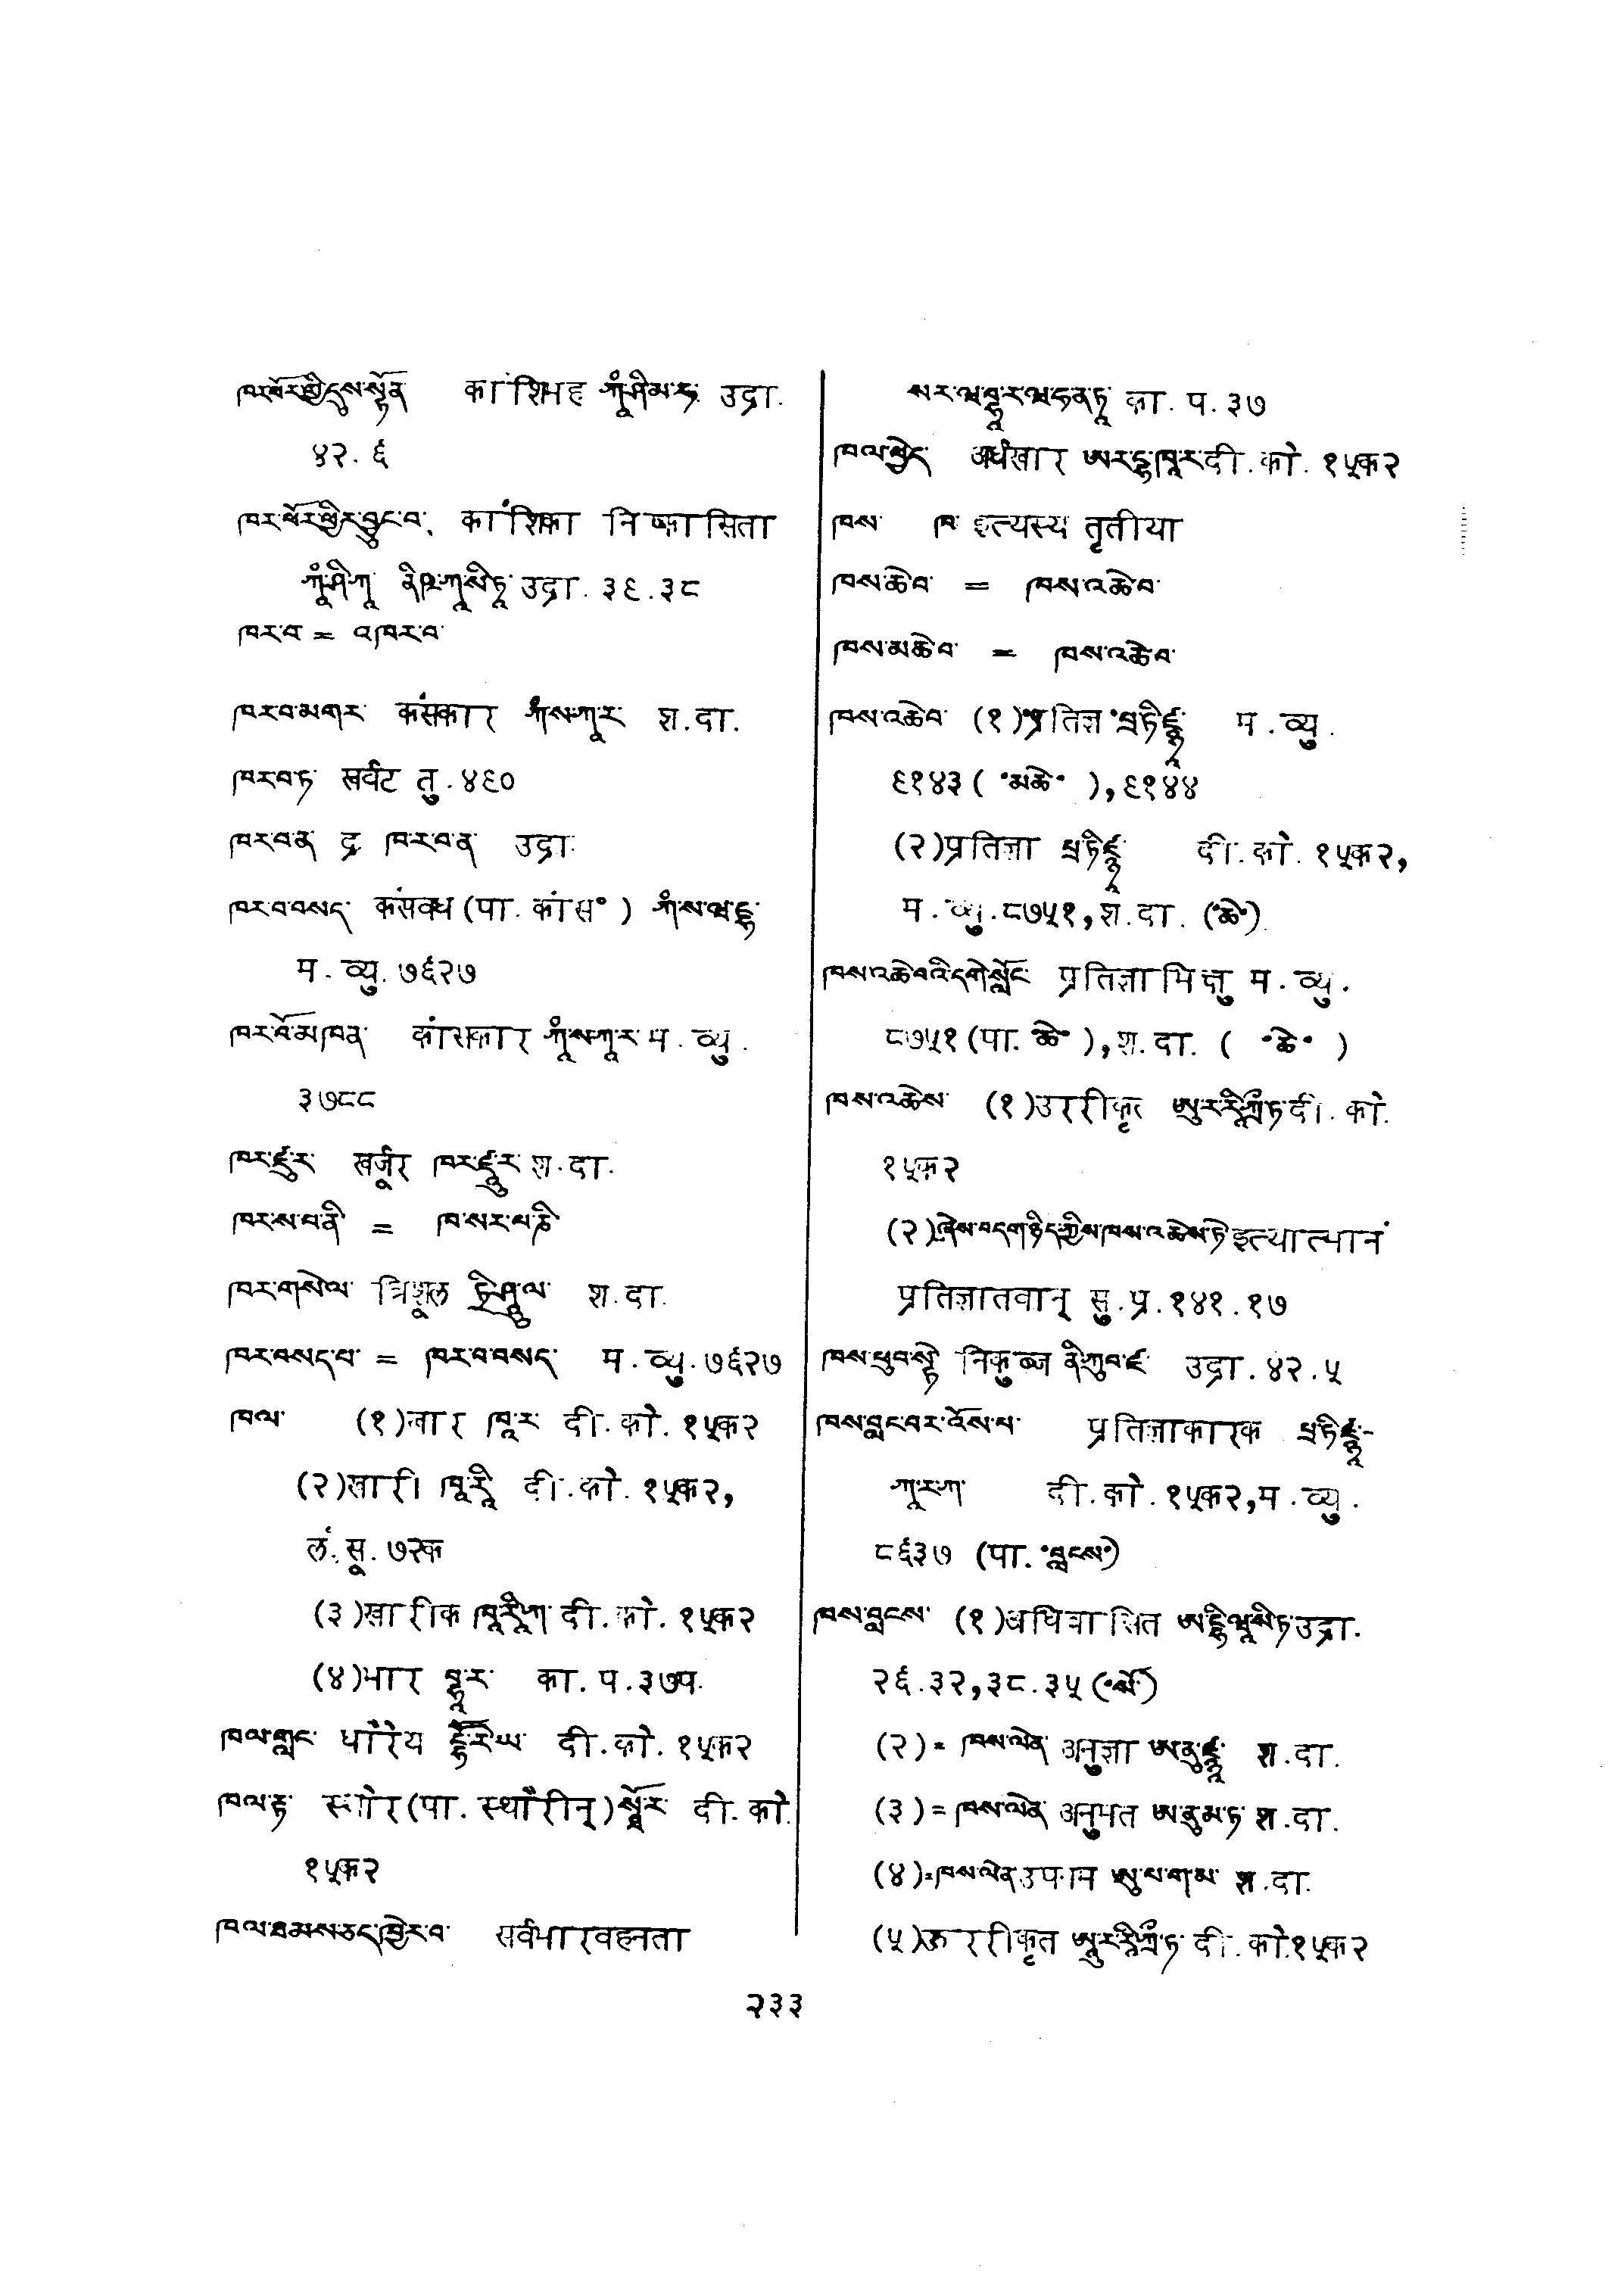 ཁར་ཕོར་གྱི་དུས་སྟོན་ कांशिमह ཀཱཾ་ཤི་མ་ཧ་ उद्रा.
४२.६
ཁར་ཕོར་ཕྱིར་བྱུང་བ་ कांशिका निष्कासिता
ཀཱཾ་ཤི་ཀཱ་ ནིཥྐཱ་སི་ཏཱ་ उद्रा. ३९.३८
ཁར་བ་ = འཁར་བ་
ཁར་བ་མགར་ कंसकार ཀཾ་ས་ཀཱ་ར་ श.दा.
ཁར་བ་ཏ་ खर्वट तु.४९०
ཁར་བ་ན་ द्र ཁར་བ་ན་ उद्रा.
ཁར་བ་བསད་ कंसवध (पा. कांस॰) ཀཾ་ས་ཝ་དྷ་
म.व्यु.७६२७
ཁར་བོ་མཁན་ कांसकार ཀཱཾ་ས་ཀཱ་ར་ म.व्यु.
३७८८
ཁར་ཛུར་ खर्जूर ཁར་ཛཱུ་ར་ श.दा.
ཁར་ས་པ་ནི་ = ཁ་སར་པ་ཎི་
ཁར་གསེལ་ त्रिशूल ཏྲི་ཤཱུ་ལ་ श.दा.
ཁར་བསད་པ་ = ཁར་བ་བསད་ म.व्यु.७६२७
ཁལ་ (१)खार ཁཱ་ར་ दी.को.१५क२
(२)खारी ཁཱ་རཱི་ दी.को.१५क२,
लं.सू.७२क
(३)खारीक ཁཱ་རཱི་ཀ་ दी.को.१५क२
(४)भार བྷཱ་ར་ का.प.३७प.
ཁལ་གླང་ धौरेय དྷཽ་རེ་ཡ་ दी.को.१५क२
ཁལ་རྟ་ स्थौर(पा. स्थौरीन्)སྠཽ་ར་ दी.को.
१५क२
ཁལ་ཐམས་ཅད་ཁྱེར་བ་ सर्वभारवहनता
སར་ཝ་བྷཱ་ར་ཝ་ཧ་ན་ཏཱ་ का.प.३७
ཁལ་ཕྱེད་ अर्धखार ཨར་དྷ་ཁཱ་ར་ दी.को.१५क२
ཁས་ ཁ་ इत्यस्य तृतीया
ཁས་ཆེབ་ = ཁས་འཆེབ་
ཁས་མཆེབ་ = ཁས་འཆེབ་
ཁས་འཆེབ་ (१)॰प्रतिज्ञ ॰པྲ་ཏི་ཛྙཱ་ म.व्यु.
९१४३(॰མཆེ॰),९१४४
(२)प्रतिज्ञा པྲ་ཏི་ཛྙཱ་ दी.को.१५क२,
म.व्यु.८७५१,श.दा.(॰ཆེ॰)
ཁས་འཆེབའི་དགེ་སློང་ प्रतिज्ञाभिक्षु म.व्यु.
८७५१(पा.ཆེ॰),श.दा.(॰ཆེ॰)
ཁས་འཆེས་ (१)उररीकृत ཨུ་ར་རཱི་ཀྲྀ་ཏ་ दी.को.
१५क२
(२)ཞེས་བདག་ཉིད་ཀྱིས་ཁས་འཆེས་ཏེ་ इत्यात्मानं
प्रतिज्ञातवान् सु.प्र.१४१.१७
ཁས་ཕུབ་སྟེ་ निकुब्ज ནི་ཀུབ་ཛ་ उद्रा.४२.५
ཁས་བླང་བར་འོས་པ་ प्रतिज्ञाकारक པྲ་ཏི་ཛྙཱ་-
ཀཱ་ར་ཀ་ दी.को.१५क२,म.व्यु.
८६३७ (पा.॰བླངས॰)
ཁས་བླངས་ (१)अधिवासित ཨ་དྷི་ཝཱ་སི་ཏ་ उद्रा.
२६.३२,३८.३५
(२)= ཁས་ལེན་ अनुज्ञा ཨ་ནུ་ཛྙཱ་ श.दा.
(३)= ཁས་ལེན་ अनुमत ཨ་ནུ་མ་ཏ་ श.दा.
(४)=ཁས་ལེན་ उपगम ཨུ་པ་ག་མ་ श.दा.
(५)ऊररीकृत ཨཱུ་ར་རཱི་ཀྲྀ་ཏ་ दी.को.१५क२
२३३